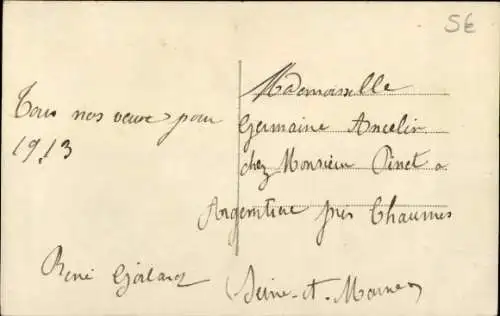 5€
Tous nos veux pour
1913
Mademoiselle
Germaine Ancelin
chez Monsieur Pinet a
Argentière près Chaumes
Seine-et-Marne
René